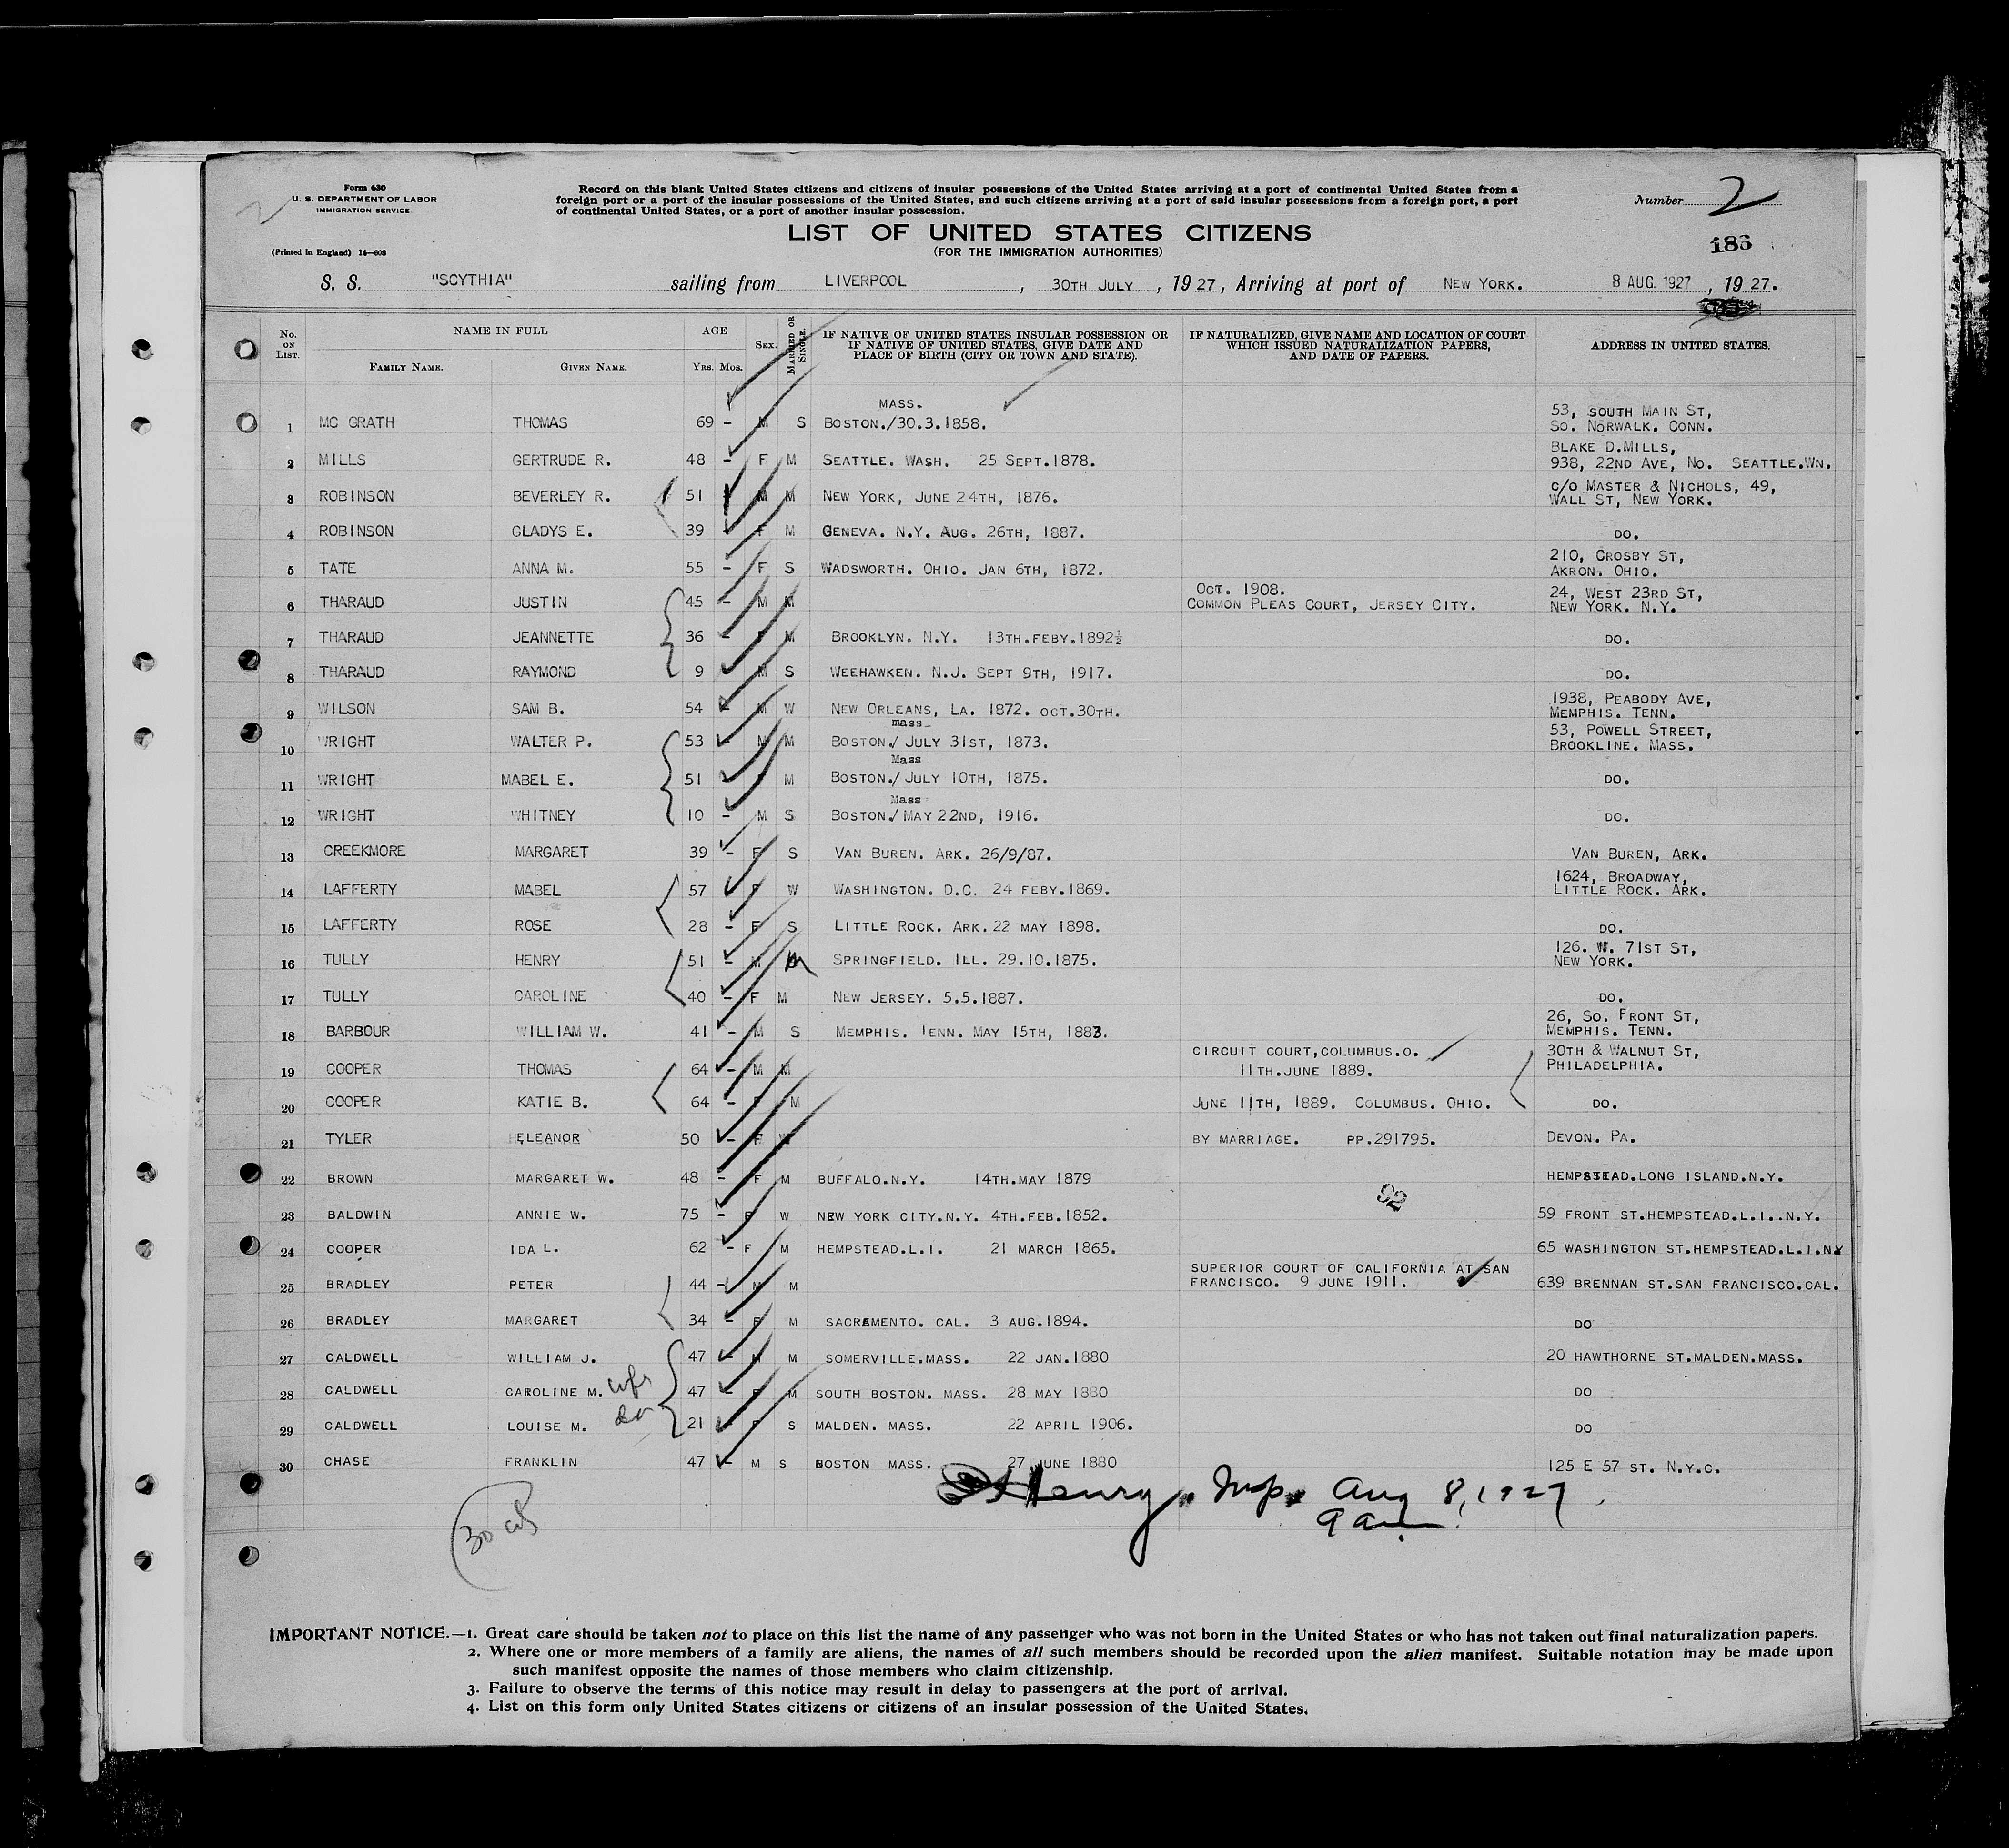 Form 630
U. S. DEPARTMENT OF LABOR
IMMIGRATION SERVICE
(Printed in England) 14—608
Record on this blank United States citizens and citizens of insular possessions of the United States arriving at a port of continental United States from a
foreign port or a port of the insular possessions of the United States, and such citizens arriving at a port of said insular possessions from a foreign port, a port
of continental United States, or a port of another insular possession.
Number 2
LIST OF UNITED STATES CITIZENS
(FOR THE IMMIGRATION AUTHORITIES)
186
S. S. "SCYTHIA" sailing from LIVERPOOL, 30TH JULY, 1927, Arriving at port of NEW YORK. 8 AUG. 1927, 1927.
No. ON LIST.
NAME IN FULL
FAMILY NAME. GIVEN NAME.
AGE
YRS. MOS.
SEX.
MARRIED OR SINGLE.
IF NATIVE OF UNITED STATES INSULAR POSSESSION OR
IF NATIVE OF UNITED STATES, GIVE DATE AND
PLACE OF BIRTH (CITY OR TOWN AND STATE).
IF NATURALIZED, GIVE NAME AND LOCATION OF COURT
WHICH ISSUED NATURALIZATION PAPERS,
AND DATE OF PAPERS.
ADDRESS IN UNITED STATES.
MASS.
1 MC GRATH THOMAS 69 - M S BOSTON./30.3.1858. 53, SOUTH MAIN ST,
SO. NORWALK. CONN.
2 MILLS GERTRUDE R. 48 - F M SEATTLE. WASH. 25 SEPT.1878. BLAKE D.MILLS,
938, 22ND AVE, NO. SEATTLE.WN.
3 ROBINSON BEVERLEY R. 51 M M NEW YORK, JUNE 24TH, 1876. C/O MASTER & NICHOLS, 49,
WALL ST, NEW YORK.
4 ROBINSON GLADYS E. 39 F M GENEVA. N.Y. AUG. 26TH, 1887. DO.
5 TATE ANNA M. 55 - F S WADSWORTH. OHIO. JAN 6TH, 1872. 210, CROSBY ST,
AKRON. OHIO.
6 THARAUD JUSTIN 45 - M M OCT. 1908.
COMMON PLEAS COURT, JERSEY CITY. 24, WEST 23RD ST,
NEW YORK. N.Y.
7 THARAUD JEANNETTE 36 - F M BROOKLYN. N.Y. 13TH.FEBY.1892½ DO.
8 THARAUD RAYMOND 9 M S WEEHAWKEN. N.J. SEPT 9TH, 1917. DO.
9 WILSON SAM B. 54 - M W NEW ORLEANS, LA. 1872. OCT.30TH. 1938, PEABODY AVE,
MEMPHIS. TENN.
mass
10 WRIGHT WALTER P. 53 - M M BOSTON./ JULY 31ST, 1873. 53, POWELL STREET,
BROOKLINE. MASS.
Mass
11 WRIGHT MABEL E. 51 F M BOSTON./ JULY 10TH, 1875. DO.
Mass
12 WRIGHT WHITNEY 10 - M S BOSTON./ MAY 22ND, 1916. DO.
13 CREEKMORE MARGARET 39 - F S VAN BUREN. ARK. 26/9/87. VAN BUREN, ARK.
14 LAFFERTY MABEL 57 - F W WASHINGTON. D.C. 24 FEBY.1869. 1624, BROADWAY,
LITTLE ROCK. ARK.
15 LAFFERTY ROSE 28 - F S LITTLE ROCK. ARK. 22 MAY 1898. DO.
16 TULLY HENRY 51 - M M SPRINGFIELD. ILL. 29.10.1875. 126. W. 71ST ST,
NEW YORK.
17 TULLY CAROLINE 40 - F M NEW JERSEY. 5.5.1887. DO.
18 BARBOUR WILLIAM W. 41 - M S MEMPHIS. TENN. MAY 15TH, 1883. 26, SO. FRONT ST,
MEMPHIS. TENN.
19 COOPER THOMAS 64 - M M CIRCUIT COURT,COLUMBUS.O.
11TH.JUNE 1889. 30TH & WALNUT ST,
PHILADELPHIA.
20 COOPER KATIE B. 64 - F M JUNE 11TH, 1889. COLUMBUS. OHIO. DO.
21 TYLER ELEANOR 50 - F W BY MARRIAGE. PP.291795. DEVON. PA.
22 BROWN MARGARET W. 48 - F M BUFFALO.N.Y. 14TH.MAY 1879 HEMPSTEAD.LONG ISLAND.N.Y.
92
23 BALDWIN ANNIE W. 75 - F W NEW YORK CITY.N.Y. 4TH.FEB.1852. 59 FRONT ST.HEMPSTEAD.L.I..N.Y.
24 COOPER IDA L. 62 - F M HEMPSTEAD.L.I. 21 MARCH 1865. 65 WASHINGTON ST.HEMPSTEAD.L.I.NY
25 BRADLEY PETER 44 - M M SUPERIOR COURT OF CALIFORNIA AT SAN
FRANCISCO. 9 JUNE 1911. 639 BRENNAN ST.SAN FRANCISCO.CAL.
26 BRADLEY MARGARET 34 - F M SACRAMENTO. CAL. 3 AUG.1894. DO
27 CALDWELL WILLIAM J. 47 - M M SOMERVILLE.MASS. 22 JAN.1880 20 HAWTHORNE ST.MALDEN.MASS.
28 CALDWELL CAROLINE M. wife 47 - F M SOUTH BOSTON. MASS. 28 MAY 1880 DO
29 CALDWELL LOUISE M. da 21 - F S MALDEN. MASS. 22 APRIL 1906. DO
30 CHASE FRANKLIN 47 - M S BOSTON MASS. 27 JUNE 1880 125 E 57 ST. N.Y.C.
Henry, Insp. Aug 8, 1927
9 am.
30
IMPORTANT NOTICE.—1. Great care should be taken not to place on this list the name of any passenger who was not born in the United States or who has not taken out final naturalization papers.
2. Where one or more members of a family are aliens, the names of all such members should be recorded upon the alien manifest. Suitable notation may be made upon
such manifest opposite the names of those members who claim citizenship.
3. Failure to observe the terms of this notice may result in delay to passengers at the port of arrival.
4. List on this form only United States citizens or citizens of an insular possession of the United States.